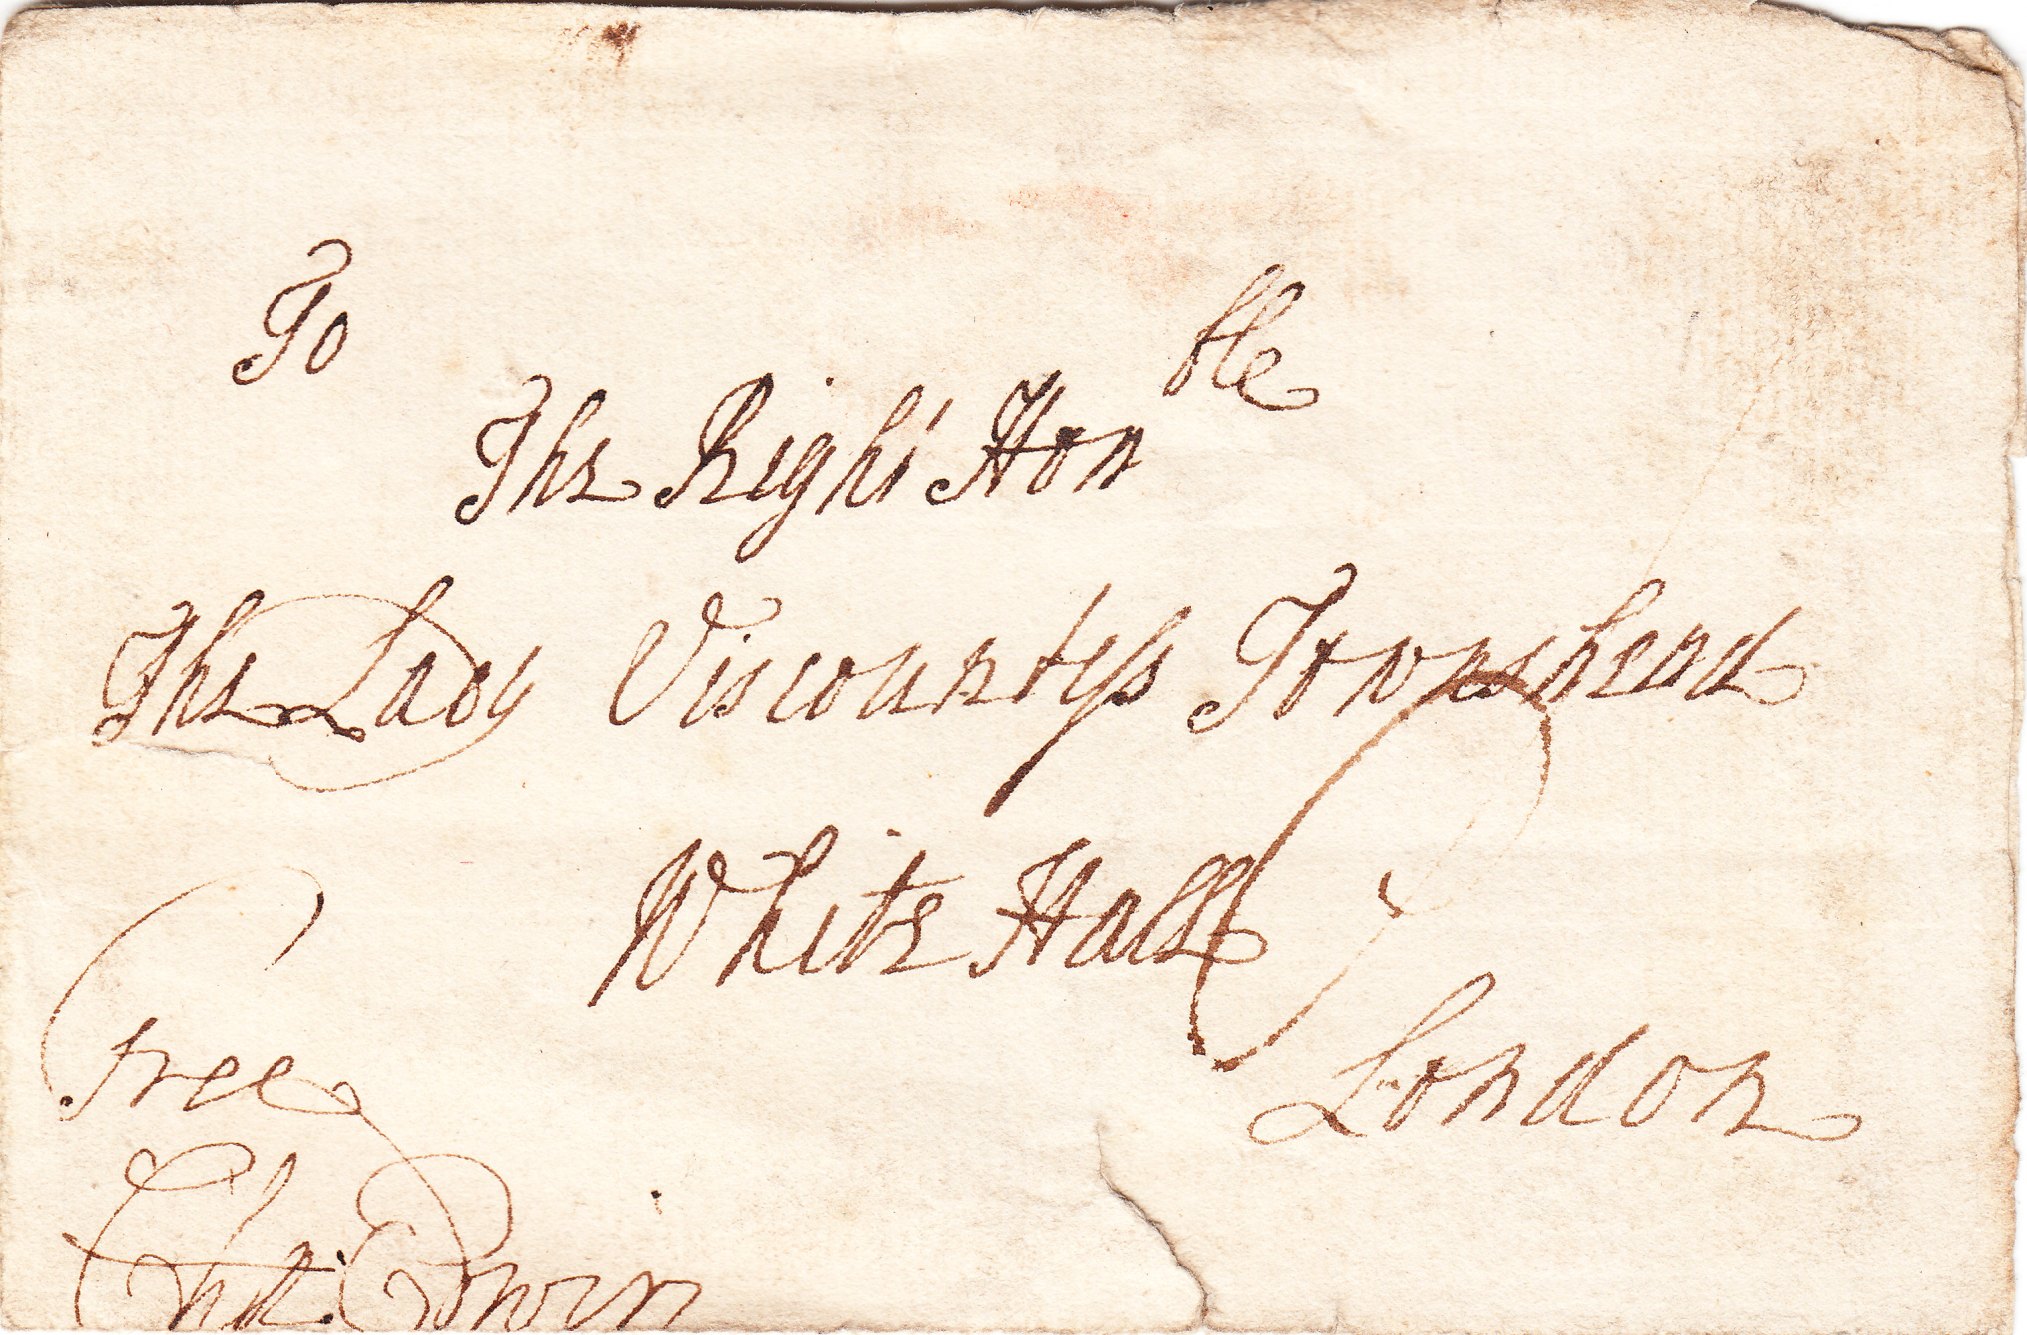 To
The Right Honble
The Lady Viscountess Townshend
White Hall
London
Free